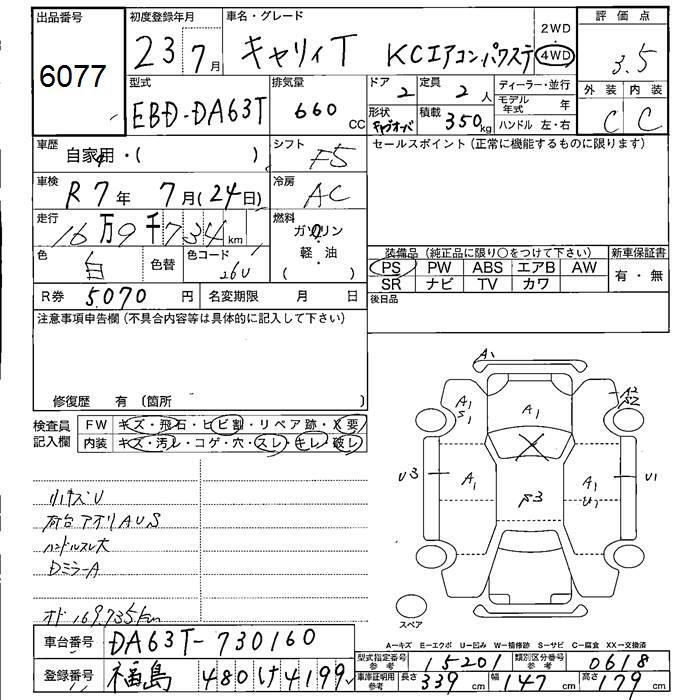 出品番号
6077
初度登録年月
23 7月
車名・グレード
キャリィT KCエアコンパワステ
2WD
4WD
評価点
3.5
外装 内装
C C
型式
EBD-DA63T
排気量
660 CC
ドア
2
定員
2人
形状
キャブオーバ
積載
350kg
ディーラー・並行
モデル年式 年
ハンドル 左・右
車歴
自家用・( )
シフト
F5
セールスポイント (正常に機能するものに限ります)
車検
R7年 7月(24日)
冷房
AC
走行
16万9千734km
燃料
ガソリン
軽・油
( )
色
白
色替
色コード
26U
装備品 (純正品に限り○をつけて下さい)
PS PW ABS エアB AW
SR ナビ TV カワ
新車保証書
有・無
R券 5070円
名変期限 月 日
後日品
注意事項申告欄 (不具合内容等は具体的に記入して下さい)
修復歴 有 (箇所 )
検査員記入欄
FW キズ・飛石・ヒビ割・リペア跡・X要
内装 キズ・汚レ・コゲ・穴・スレ・キレ・破レ
小キズU
荷台アオリAUS
ハンドルスレ大
DミラーA
オド169.735km
A1
A1
S1
A1
A2
S2
U3
A1
S3
A1
U1
U1
スペア
A−キズ E−エクボ U−凹み W−補修跡 S−サビ C−腐食 XX−交換済
車台番号
DA63T-730160
登録番号
福島 480 け 4199
型式指定番号
参考
15201
類別区分番号
参考
0618
車庫証明用
参考
長さ
339
幅
147
高さ
179
cm